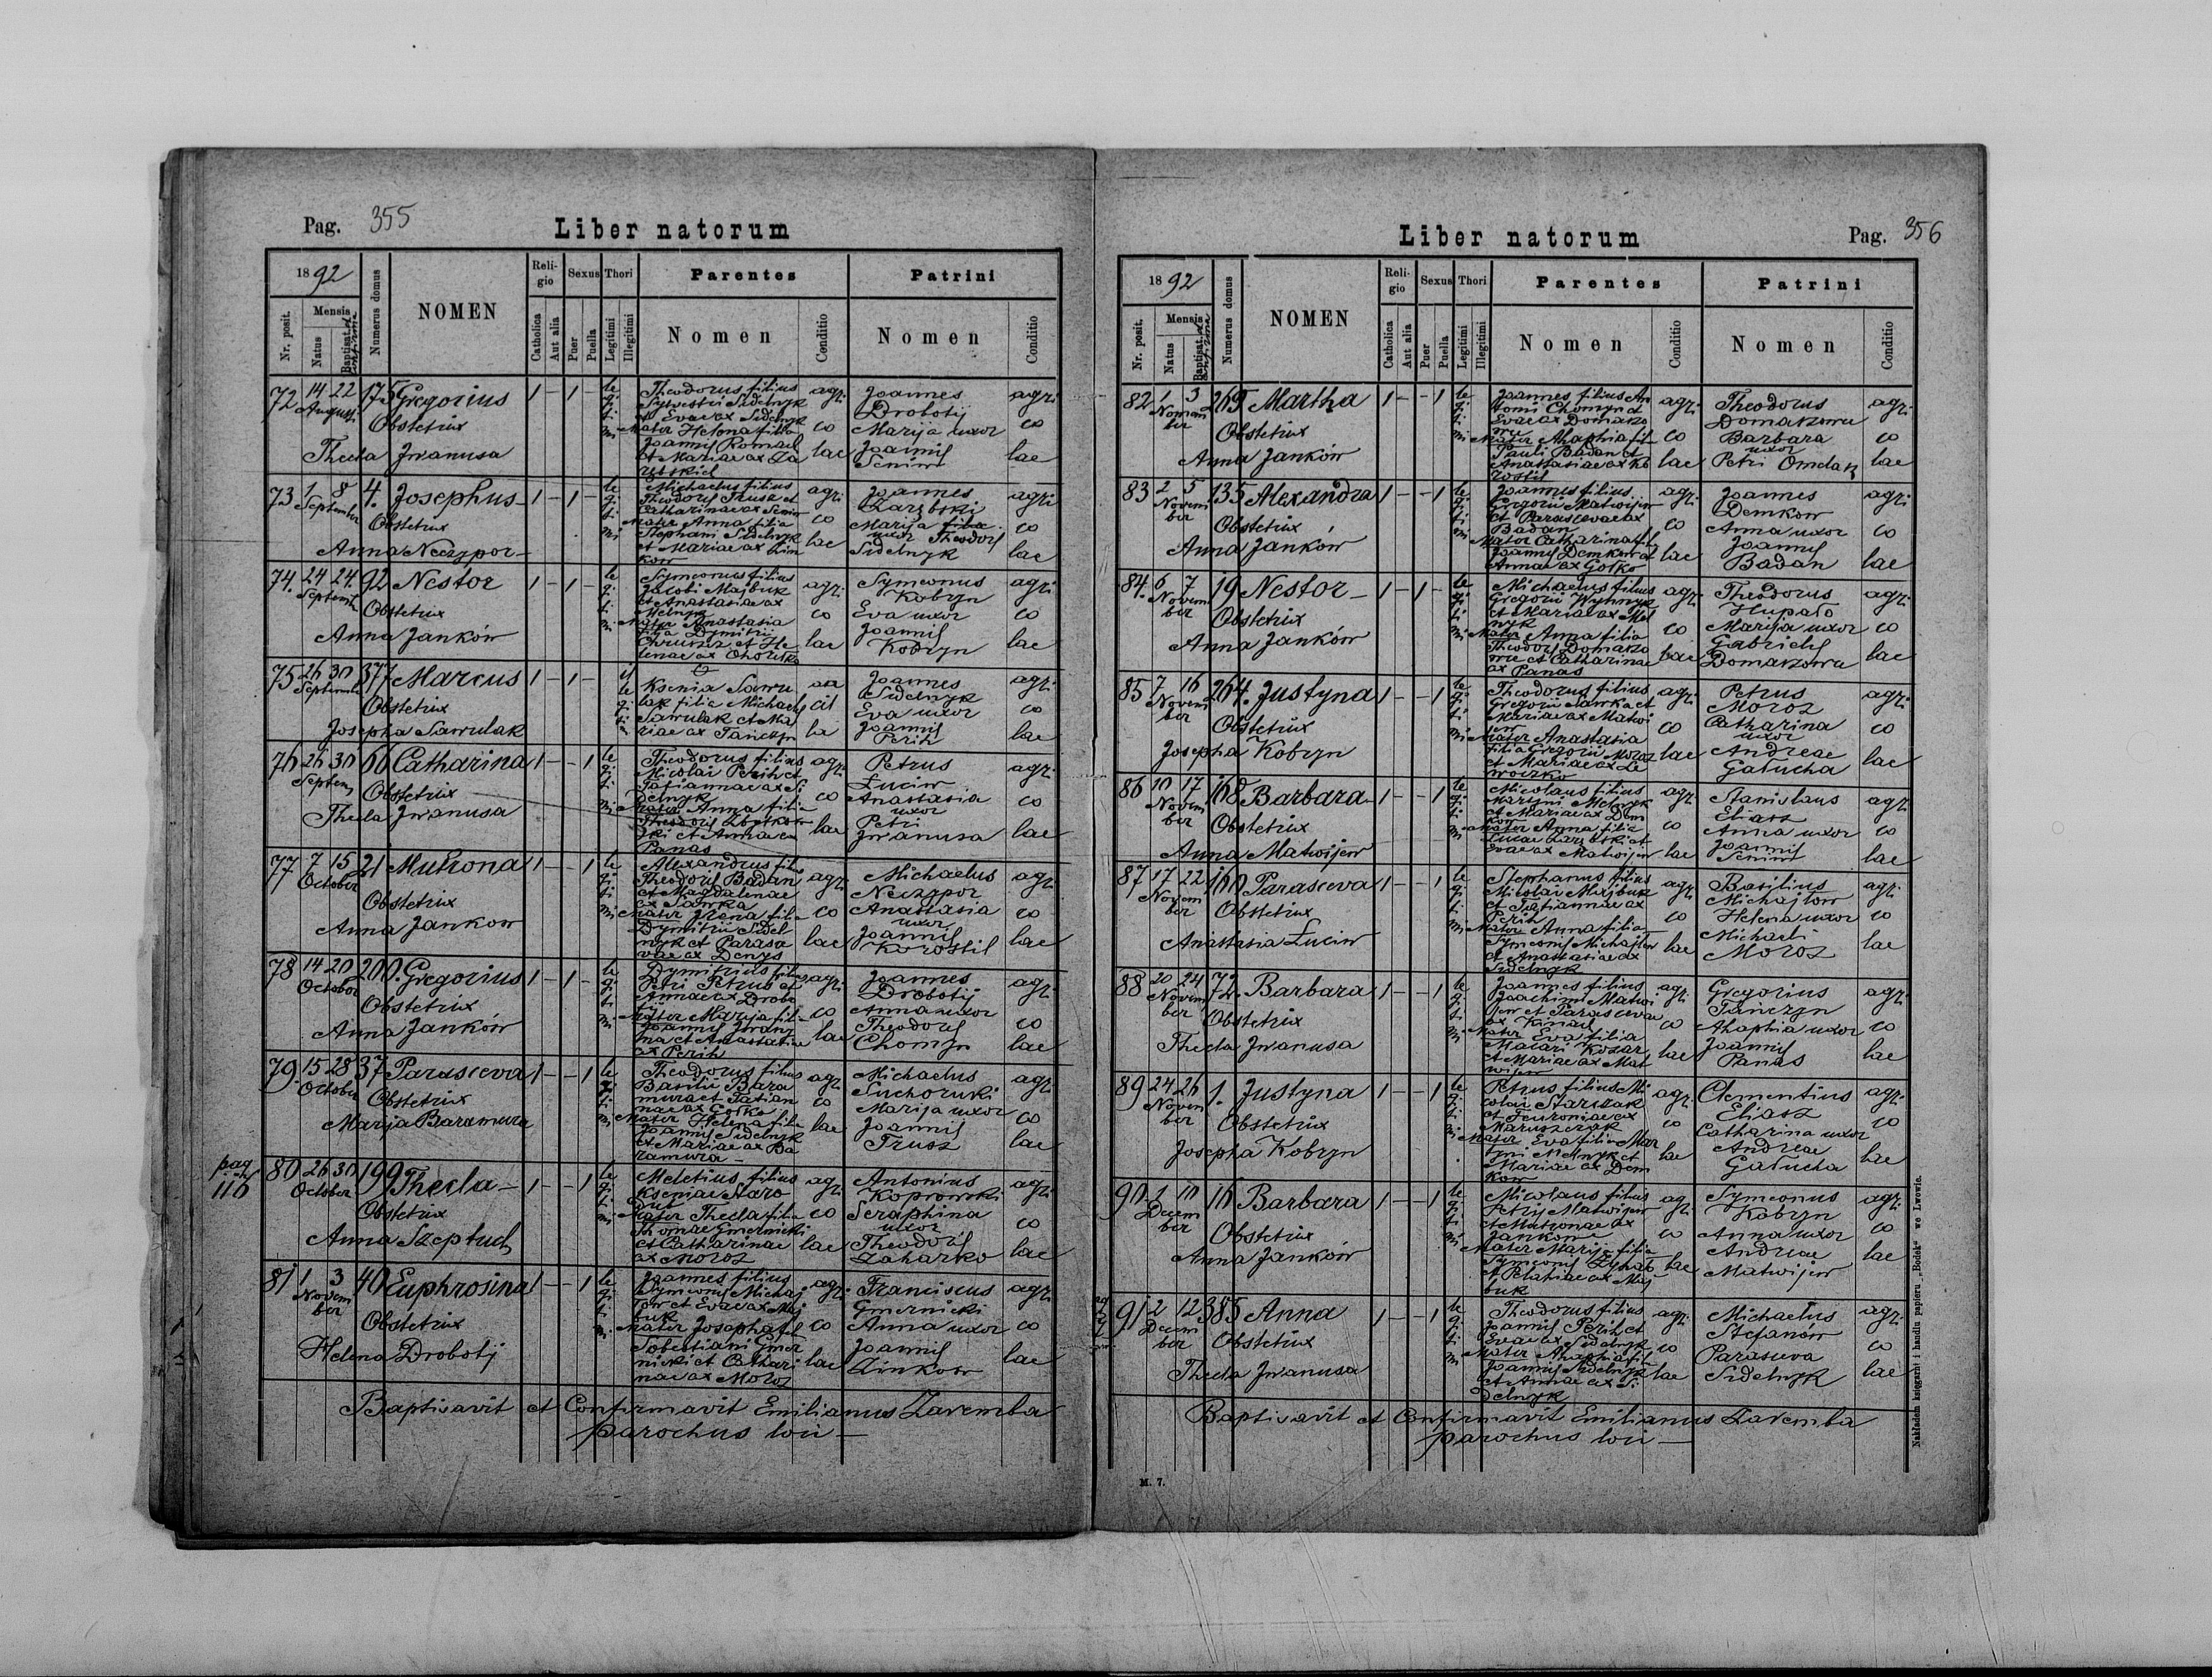 Pag. 355
Liber natorum
1892
Numerus domus
NOMEN
Reli-gio
Sexus
Thori
Parentes
Patrini
Nr. posit.
Mensis
Natus
Baptisat.
Catholica
Aut alia
Puer
Puella
Legitimi
Illegitimi
Nomen
Conditio
Nomen
Conditio
72 14 22 Augusti 175 Gregorius 1 – 1 –
Obstetrix
Thecla Jwanusa
Theodorus filius
Sylvestri Sidelnyk
et Evae ax Sidelnyk
Mater Helena filia
Joannis Romach
et Mariae ax Za
rebskich
agri co lae
Joannes
Drobotij
Marija uxor
Joannis
Seniw
agri co lae
73 1 8 September 4. Josephus 1 – 1 –
Obstetrix
Anna Neczypor
Michaelus filius
Theodori Trusz et
Catharinae ax Seniw
Mater Anna filia
Stephani Sidelnyk
et Mariae ax
agri co lae
Joannes
Zarębski
Marija
uxor Theodori
Sidelnyk
agri co lae
74. 24 24 Septemb 92 Nestor 1 – 1 –
Obstetrix
Anna Janków
Symeonus filius
Jacobi Majbuk
et Anastasiae ax
Melnyk
Mater Anastasia
filia Dymitri
et He
lenae ax
agri co lae
Symeonus
Kobryn
Eva uxor
Joannis
Kobryn
agri co lae
75 26 30 Septemb 377 Marcus 1 – 1 –
Obstetrix
Josepha Sawulak
Ksenia Sawu
lak filia Michaelis
Sawulak et Ma
riae ax Tanczyn
Joannes
Sidelnyk
Eva uxor
Joannis
Perih
agri co lae
76 26 30 Septem 66 Catharina 1 – – 1
Obstetrix
Thecla Jwanusa
Theodorus filius
Nicolai Perih et
Tatiannae ax Si
delnyk
Mater Anna filia
Theodori
ski et Annae ex
Panas
agri co lae
Petrus
Łuciw
Anastasia
uxor
Petri
Jwanusa
agri co lae
77 7 15 October 21 Matrona 1 – – 1
Obstetrix
Anna Jankow
Alexandrus filius
Theodori Badan
et Magdalenae
ex Sawka
Mater Irena filia
Dymitrii Sidel
nyk et Parasce
vae ax Denys
agri co lae
Michaelus
Neczypor
Anastasia
uxor
Joannis
Korostil
agri co lae
78 14 20 October 200 Gregorius 1 – 1 –
Obstetrix
Anna Janków
Dymitrius filius
Petri Petrus et
Annae ax Drobo
tij
Mater Marija filia
Joannis
na et Anastasiae
ax Perih
agri co lae
Joannes
Drobotij
Anna uxor
Theodori
Chomyn
agri co lae
79. 15 28 October 37 Parasceva 1 – – 1
Obstetrix
Marja Baramura
Theodorus filius
Basilii Bara
mura et Tatian
nae ax Gołko
Mater Helena filia
Joannis Sidelnyk
et Mariae ax Ba
ramura
agri co lae
Michaelus
Suchoruki
Marija uxor
Joannis
Trusz
agri co lae
pag 116
80 26 30 October 199 Thecla 1 – – 1
Obstetrix
Anna Szeptuch
Meletius filius
Kseniae
Mater Thecla filia
Thomae Gmernicki
et Catharinae
ax Moroz
agri co lae
Antonius
Koprowski
Seraphina
uxor
Theodori
Zaharko
agri co lae
81 1 3 Novem ber 40 Euphrosina 1 – – 1
Obstetrix
Helena Drobotij
Joannes filius
Symeonis Michaj
low et Evae ax Maj
buk
Mater Josepha fil
Sobestiani Gmer
nicki et Cathari
nae ax Moroz
agri co lae
Franciscus
Gmernicki
Anna uxor
Joannis
agri co lae
Baptisavit et Confirmavit Emilianus Zaremba
parochus loci
Liber natorum
Pag. 356
1892
Numerus domus
NOMEN
Reli-gio
Sexus
Thori
Parentes
Patrini
Nr. posit.
Mensis
Natus
Baptisat.
Catholica
Aut alia
Puer
Puella
Legitimi
Illegitimi
Nomen
Conditio
Nomen
Conditio
82 1 3 Novem ber 265 Martha 1 – – 1
Obstetrix
Anna Janków
Joannes filius An
tonii Chomyn et
Evae ax Domarzo
wu
Mater Ahaphia fil
Pauli Badan et
Anastasiae ax Ko
rostil
agri co lae
Theodorus
Domarzowu
Barbara
uxor
Petri
agri co lae
83 2 5 Novem ber 135 Alexandra 1 – – 1
Obstetrix
Anna Janków
Joannes filius
Gregorii Matwijew
et Parascevae ax
Badan
Mater Catharina fil
Joannis Demkow et
Annae ax Gołko
agri co lae
Joannes
Demkow
Anna uxor
Joannis
Badan
agri co lae
84. 6 7 Novem ber 19 Nestor 1 – 1 –
Obstetrix
Anna Janków
Michaelus filius
Gregorii Wyhnyk
et Mariae ax Mel
nyk
Mater Anna filia
Theodori Domarzo
wu et Catharinae
ax Panas
agri co lae
Theodorus
Hupało
Marija uxor
Gabrielis
Domarzowu
agri co lae
85 7 16 Novem ber 264. Justyna 1 – – 1
Obstetrix
Josepha Kobryn
Theodorus filius
Gregorii Sawka et
Mariae ax Matwi
jew
Mater Anastasia
filia Gregorii Moroz
et Mariae ax Le
woczko
agri co lae
Petrus
Moroz
Catharina
uxor
Andreae
Gałucha
agri co lae
86 10 17 Novem ber 168 Barbara 1 – – 1
Obstetrix
Anna Matwijew
Nicolaus filius
Martyni Melnyk
et Mariae ax Dem
kow
Mater Anna filia
Lucae Zarębski et
Evae ax Matwijew
agri co lae
Stanislaus
Eliasz
Anna uxor
Joannis
Seniw
agri co lae
87 17 22 Novem ber 160 Parasceva 1 – – 1
Obstetrix
Anastasia Łuciw
Stephanus filius
Nicolai Majbuk
et Tatiannae ax
Perih
Mater Anna filia
Symeonis Michajlow
et Anastasiae ax
Sidelnyk
agri co lae
Basilius
Michajlow
Helena uxor
Michaeli
Moroz
agri co lae
88 20 24 Novem ber 72. Barbara 1 – – 1
Obstetrix
Thecla Jwanusa
Joannes filius
Joachimi Matwi
jew et Parascevae
ax Kinach
Mater Eva filia
Macari Kozar
et Mariae ax Mat
wijew
agri co lae
Gregorius
Tanczyn
Ahaphia uxor
Joannis
Panas
agri co lae
89 24 26 Novem ber 1. Justyna 1 – – 1
Obstetrix
Josepha Kobryn
Petrus filius Ni
colai Starczak
et Feuroniae ax
Maruszczak
Mater Eva filia Mar
tyni Melnyk et
Mariae ax Dem
kow
agri co lae
Clementius
Eliasz
Catharina uxor
Andreae
Gałucha
agri co lae
90 1 10 Decem ber 16 Barbara 1 – – 1
Obstetrix
Anna Janków
Nicolaus filius
Petri Matwijew
et Matronae ax
Jankow
Mater Marija filia
Symeonis
et Pelahiae ax Maj
buk
agri co lae
Symeonus
Kobryn
Anna uxor
Andreae
Matwijew
agri co lae
91 2 12 Decem ber 385 Anna 1 – – 1
Obstetrix
Thecla Jwanusa
Theodorus filius
Joannis Perih et
Evae ax Sidelnyk
Mater Ahaphia fil
Joannis Sidelnyk
et Annae ax Si
delnyk
agri co lae
Michaelus
Stefanów
Parasceva
Sidelnyk
agri co lae
Baptisavit et Confirmavit Emilianus Zaremba
parochus loci
M. 7.
Nakładem księgarni i handlu papieru „Bodek“ we Lwowie.